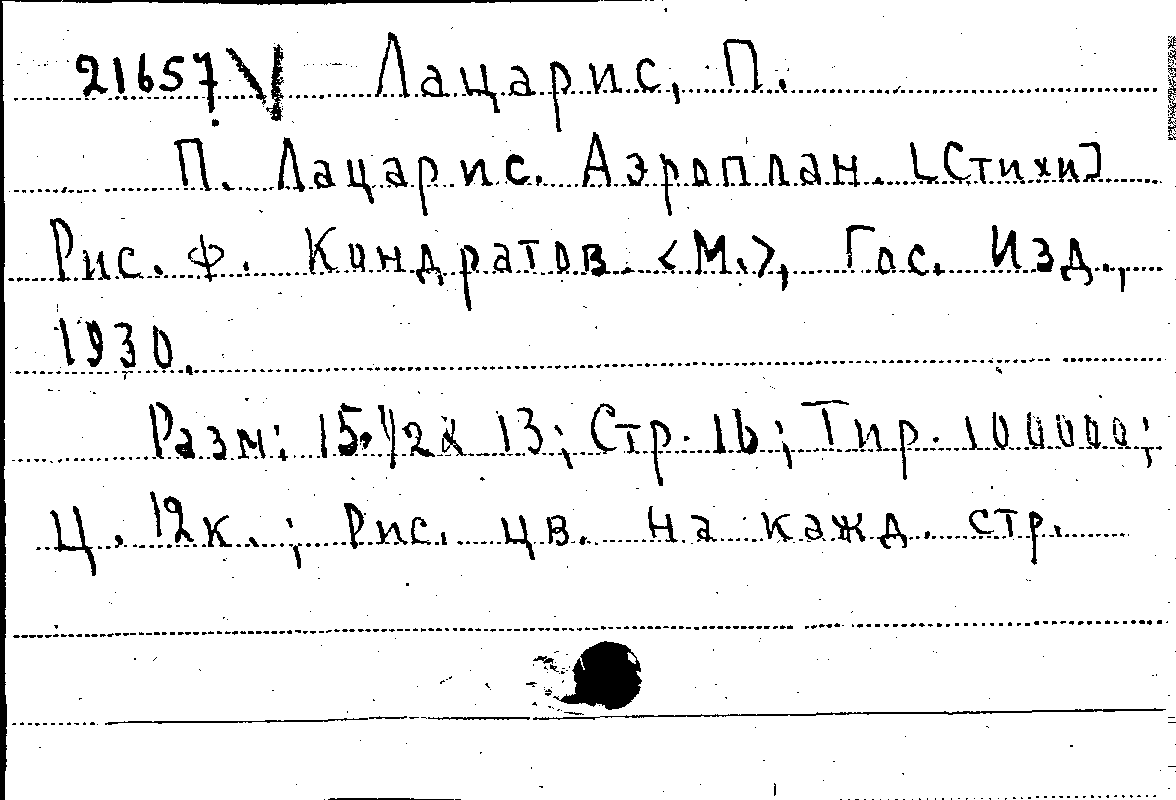 21657 V Лацарис, П.
П. Лацарис. Аэроплан. [Стихи]
Рис. Ф. Кондратов. <М.>, Гос. Изд.,
1930.
Разм: 15.1/2 х 13; Стр. 16; Тир. 100000;
Ц. 12к.; Рис. цв. на кажд. стр.